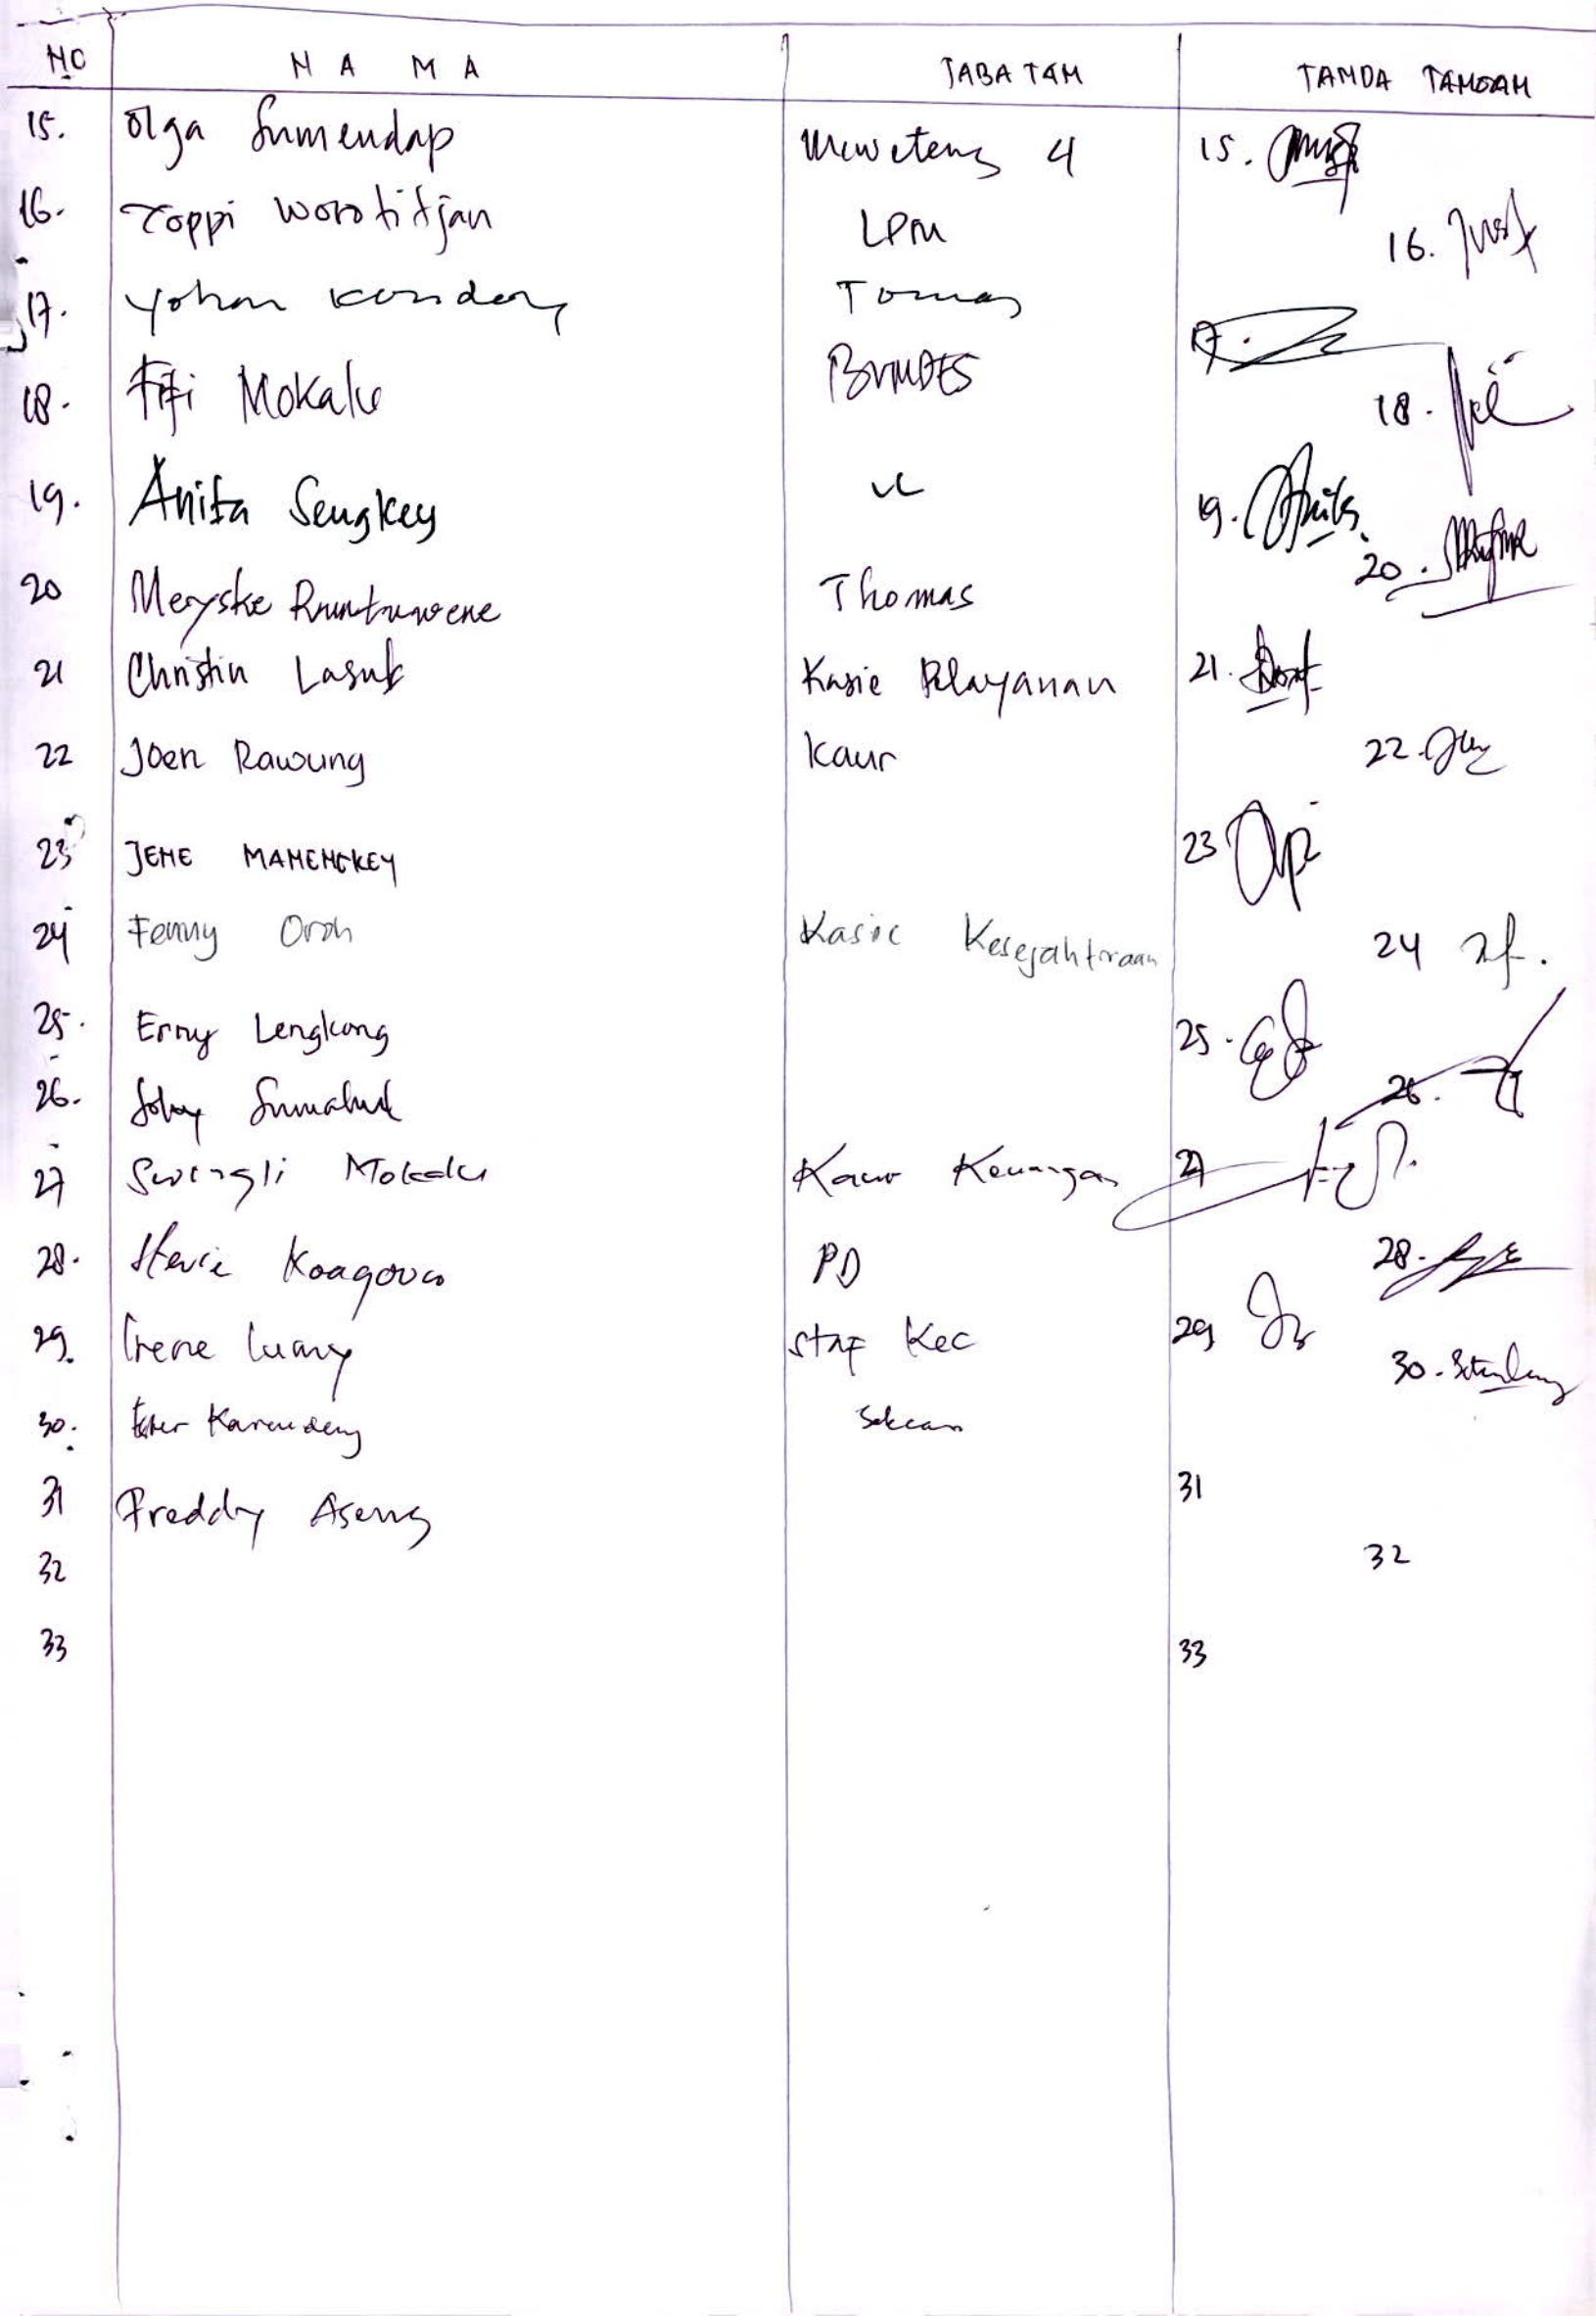 NO NAMA JABATAN TANDA TANGAN
15. Olga Sumendap Meweteng 4 15.
16. Toppi Worotitjan LPM 16.
17. Yohan Tomas 17.
18. Fifi Mokalu BUMDES 18.
19. Anita Sengkey 19.
20 Meryske Runtuwene Thomas 20.
21 Christin Lasut Kasie Pelayanan 21.
22 Joen Rawung Kaur 22.
23 JENE MAMENGKEY 23
24 Fenny Oroh Kasie Kesejahtraan 24
25. Erny Lengkong 25.
26. 26.
27 Swingli Mokalu Kaur Keuangan 27
28. Stevie PD 28.
29. Irene Staf Kec 29
30. Karundeng Sekcam 30.
31 Freddy Aseng 31
32 32
33 33